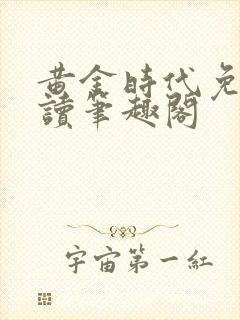 黃金時代免
讀筆趣閣
宇宙第一紅